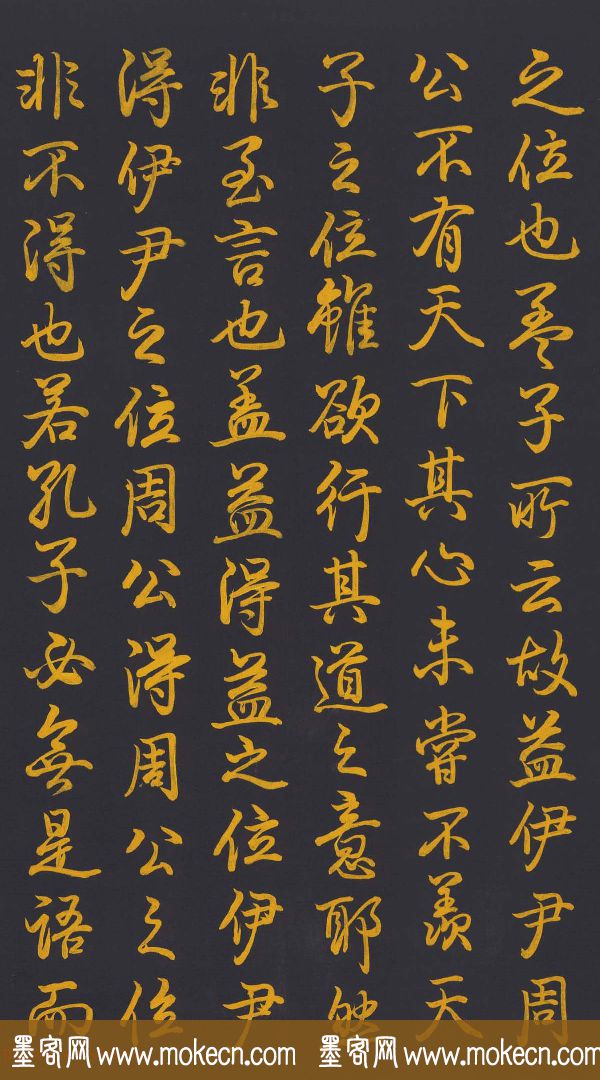 之位也孟子所云故益伊尹周
公不有天下其心未嘗不羨天
子之位雖欲行其道之意耶然
非至言也盖益得益之位伊尹
得伊尹之位周公得周公之位
非不得也若孔子必無是語而
墨客网 www.mokecn.com 墨客网 www.mokecn.com